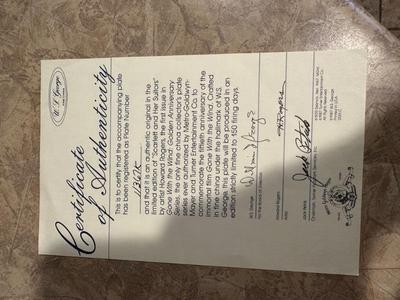 W. S. George
Certificate
of Authenticity
This is to certify that the accompanying plate
has been registered as Plate Number
and that it is an authentic original in the
limited edition of "Scarlett and Her Suitors"
by artist Howard Rogers, the first issue in
Gone With the Wind: Golden Anniversary
Series, the only fine china collector's plate
series ever authorized by Metro-Goldwyn-
Mayer and Turner Entertainment Co. to
commemorate the fiftieth anniversary of the
immortal film Gone With the Wind. Crafted
in fine china under the hallmark of W.S.
George, this plate will be produced in an
edition strictly limited to 150 firing days.
W.S. George
For the Board of Directors
Howard Rogers
Artist
H. Rogers
Jack Petrik